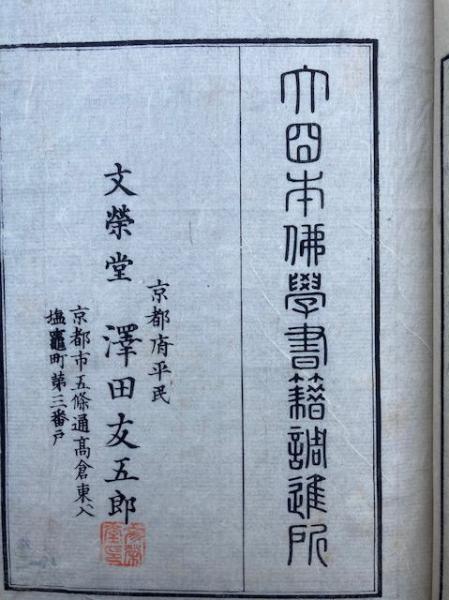 大日本佛學書籍調進所
京都府平民
文榮堂 澤田友五郎
京都市五條通高倉東入
塩竈町第三番戸